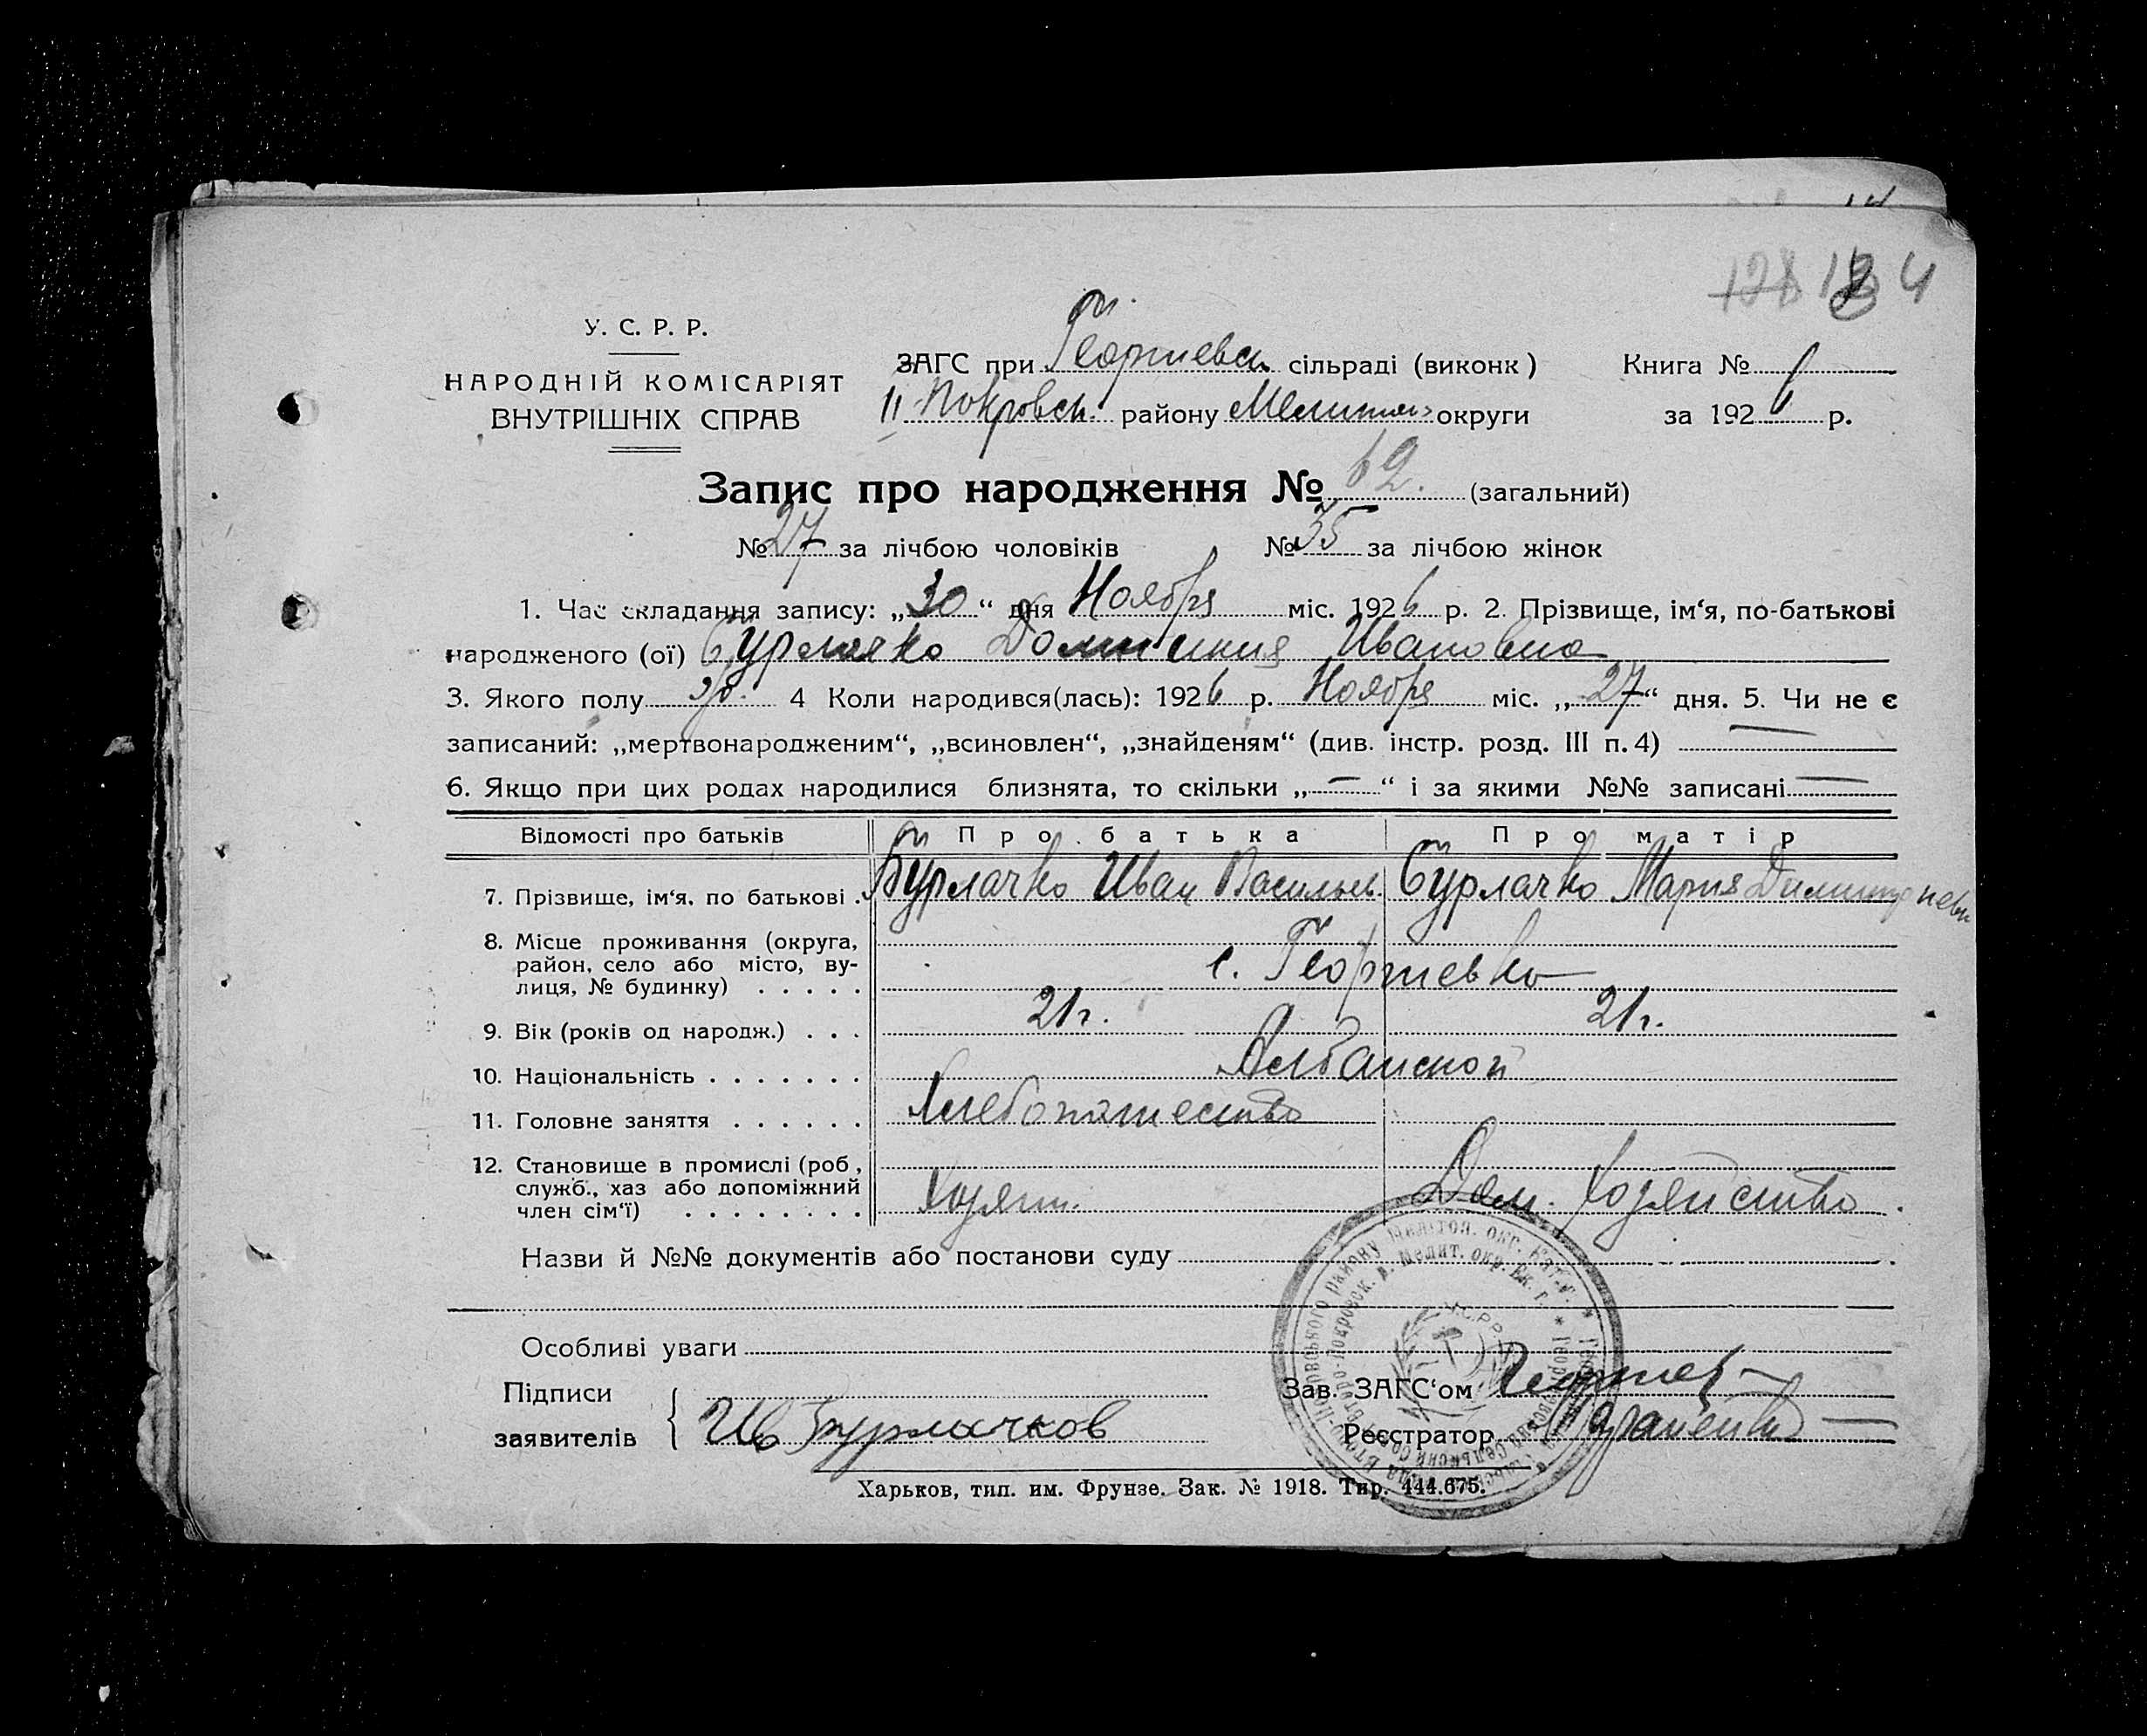 128 134
У. С. Р. Р.
НАРОДНІЙ КОМІСАРІЯТ
ВНУТРІШНІХ СПРАВ
ЗАГС при Георгиевск. сільраді (виконк)
II Покровск. району Мелитоп. округи
Книга № 6
за 1926 р.
Запис про народження № 62. (загальний)
№ 27 за лічбою чоловіків № 35 за лічбою жінок
1. Час складання запису: „30“ дня Ноября міс. 1926 р. 2. Прізвище, ім‘я, по-батькові
народженого (ої) Бурлачко Домникия Ивановна
3. Якого полу 4 Коли народився(лась): 1926 р. Ноября міс. „27“ дня. 5. Чи не є
записаний: „мертвонародженим“, „всиновлен“, „знайденям“ (див. інстр. розд. III п. 4) —
6. Якщо при цих родах народилися близнята, то скільки „—“ і за якими №№ записані —
Відомості про батьків Про батька Про матір
7. Прізвище, ім‘я, по батькові . Бурлачко Иван Васильев. Бурлачко Мария Димитриевн
8. Місце проживання (округа,
район, село або місто, ву-
лиця, № будинку) . . . . . с. Георгиевка
9. Вік (років од народж.) . . . 21 г. 21 г.
10. Національність . . . . . . . Албанской
11. Головне заняття . . . . . . Хлебопашество
12. Становище в промислі (роб.,
служб., хаз або допоміжний
член сім‘ї) . . . . . . . . Хозяин. Дом. Хозяйство.
Назви й №№ документів або постанови суду
Особливі уваги
Підписи
заявителів Ив Бурлачков
Зав. ЗАГС‘ом
Реєстратор
У.С.Р.Р.
Харьков, тип. им. Фрунзе. Зак. № 1918. Тир. 444.675.